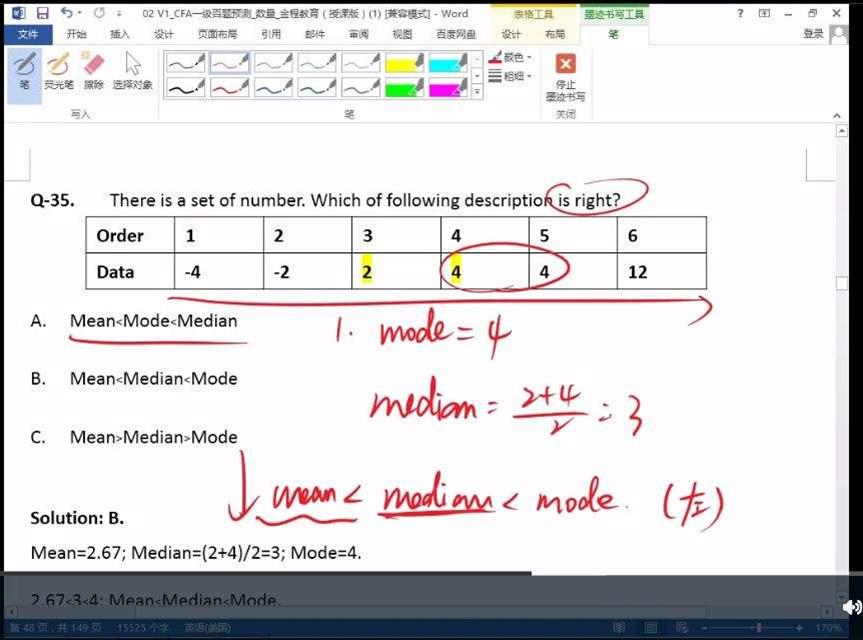 02 V1_CFA一级百题预测_数量_金程教育（授课版）(1) [兼容模式] - Word
表格工具
墨迹书写工具
文件 开始 插入 设计 页面布局 引用 邮件 审阅 视图 百度网盘 设计 布局 笔 登录
笔 荧光笔 擦除 选择对象
颜色
粗细
停止
墨迹书写
写入 笔 关闭
Q-35. There is a set of number. Which of following description is right?
Order 1 2 3 4 5 6
Data -4 -2 2 4 4 12
A. Mean<Mode<Median
1. mode = 4
B. Mean<Median<Mode
median = 2+4/2 = 3
C. Mean>Median>Mode
mean < median < mode. (左)
Solution: B.
Mean=2.67; Median=(2+4)/2=3; Mode=4.
2.67<3<4: Mean<Median<Mode.
第 48 页，共 149 页 15525 个字 英语(美国) 170%